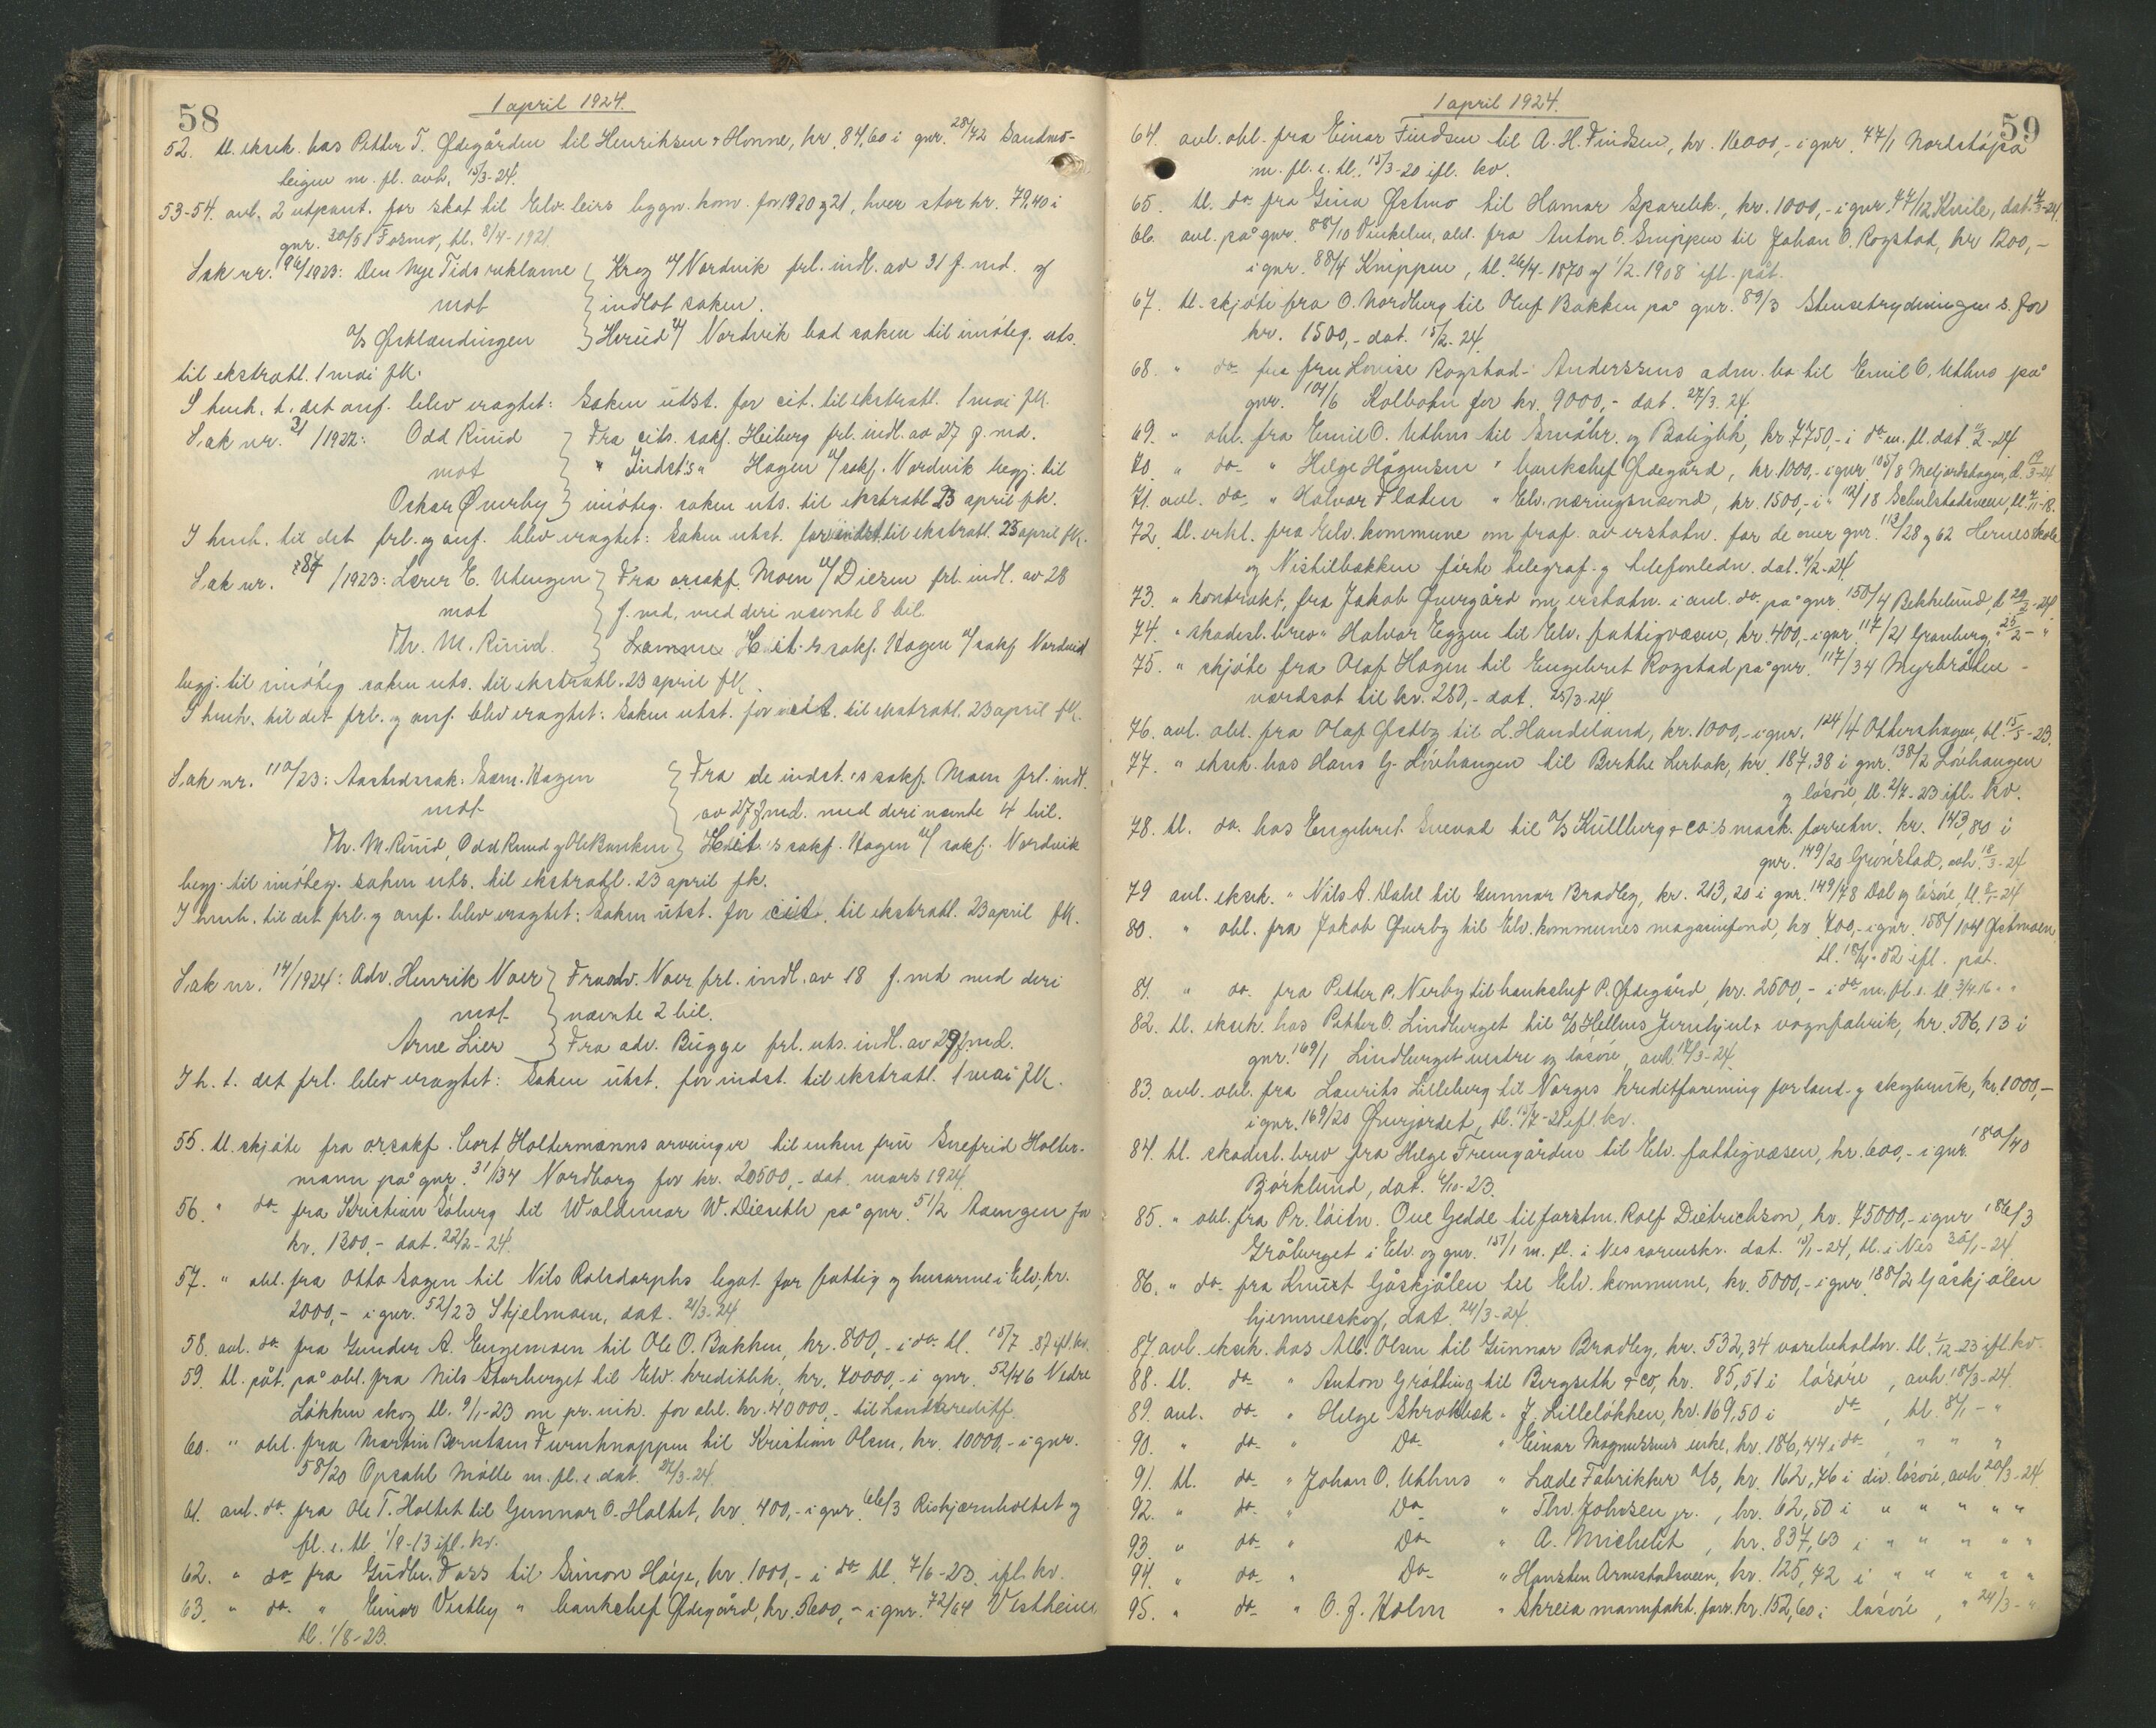 58
1 april 1924.
52. tl. eksek. hos Petter T. Ødegården til Henriksen & Honne, kr. 84,60 i gnr. 28/42 Sandmo-
teigen m. fl. avh. 15/3-24.
53-54. avl. 2 utpant. for skat til Elv. leirs bygn. kom. for 1920 og 21, hver stor kr. 79,40 i
gnr. 30/51 Formo, tl. 8/4-1921.
Sak nr. 96/1923: Den Nye Tids reklame } Krog v/ Nordvik frl. indl. av 31 f. md. og
mot } indlot saken.
A/S Østlændingen } Herud v/ Nordvik bad saken til imøteg. uts.
til ekstratl. 1 mai fk.
I henh. t. det anf. blev eragtet: Saken utst. for cit. til ekstratl. 1 mai fk.
Sak nr. 31/1922: Odd Ruud } Fra cits. sakf. Heiberg frl. indl. av 27 f. md.
mot } " Indst's " Hagen v/ sakf. Nordvik begj. til
Oskar Øverby } imøteg. saken uts. til ekstratl. 23 april fk.
I henh. til det frl. og anf. blev eragtet: Saken utst. for indst. til ekstratl. 23 april fk.
Sak nr. 87/1923: Lærer E. Utengen } Fra orsakf. Moen v/ Diesen frl. indl. av 28
mot } f. md. med deri nævnte 8 bil.
Th. M. Ruud. } H cit.'s sakf. Hagen v/ sakf. Nordvik
begj. til imøteg. saken uts. til ekstratl. 23 april fk.
I henh. til det frl. og anf. blev eragtet: Saken utst. for cit. til ekstratl. 23 april fk.
Sak nr. 110/23: Aastedssak: Sam. Hagen } Fra de indst.'s sakf. Moen frl. indl.
mot } av 27 f. md. med deri nævnte 4 bil.
Th. M. Ruud, Odd Ruud og Ole Banken } H cit.'s sakf. Hagen v/ sakf. Nordvik
begj. til imøteg. saken uts. til ekstratl. 23 april fk.
I henh. til det frl. og anf. blev eragtet: Saken utst. for cit. til ekstratl. 23 april fk.
Sak nr. 14/1924: Adv. Henrik Naer } Fra adv. Naer frl. indl. av 18 f. md med deri
mot } nævnte 2 bil.
Arne Lier } Fra adv. Bugge frl. uts. indl. av 29 f. md.
I h. t. det frl. blev eragtet: Saken utst. for indst. til ekstratl. 1 mai fk.
55. tl. skjøte fra o.r.sakf. Cort Holtermanns arvinger til enken frü Snefrid Holter-
mann på gnr. 31/34 Nordborg for kr. 20500,- dat. mars 1924.
56. " do. fra Kristian Søberg til Waldemar W. Dieseth på gnr. 51/2 for
kr. 1300,- dat. 22/2-24.
57. " obl. fra Otto Sagen til Nils Rolsdorphs legat for fattig og husarme i Elv., kr.
2000,- i gnr. 52/23 Skjelmoen, dat. 21/3-24.
58. avl. do. fra Gunder A. Engemoen til Ole O. Bakken, kr. 800,- i do. tl. 15/7 87 ifl. kv.
59. tl. påt. på obl. fra Nils Storberget til Elv. kreditbk., kr. 70000,- i gnr. 52/46 Nedre
Løkken skog tl. 9/1-23 om pr. vik. for obl. kr. 40000,- til Landkreditf.
60. " obl. fra Martin Berntsen Furuknappen til Kristian Olsen, kr. 10000,- i gnr.
58/20 Opsahl Mølle m. fl. e. dat. 27/3-24.
61. avl. do. fra Ole T. Holtet til Gunnar O. Holtet, kr. 400,- i gnr. 66/3 Riskjærnholtet og
fl. e. tl. 1/9-13 ifl. kv.
62. " do. fra Gudbr. Foss til Simon Høye, kr. 1000,- i do. tl. 7/6-23 ifl. kv.
63. " do. " Einar Vestby " banksjef Ødegård, kr. 5600,- i gnr. 72/64 Vestheim
tl. 1/8-23.
59
1 april 1924.
64. avl. obl. fra Einar Findsen til A. H. Findsen, kr. 16000,- i gnr. 77/1 Nordstøpa
m. fl. e. tl. 15/3-20 ifl. kv.
65. tl. do. fra Gina Østmo til Hamar Sparebk., kr. 1000,- i gnr. 77/12 Kvile, dat.
66. avl. på gnr. 88/10 Vinkelen, obl. fra Anton O. Snippen til Johan O. Rogstad, kr 1200,-
i gnr. 88/4 Knippen, tl. 26/4-1870 og 1/2-1908 ifl. påt.
67. tl. skjøte fra O. Nordberg til Oluf Bakken på gnr. 89/3 Stensetrydningen s. for
kr. 1500,- dat. 15/2-24.
68. " do. fra fru Lovise Rogstad-Anderssens adm. bo til Emil O. Uthus på
gnr. 101/6 Kolbotn for kr. 9000,- dat. 27/3-24.
69. " obl. fra Emil O. Uthus til Småbr. og Boligbk., kr. 7750,- i do. m. fl. dat.
70. " do. " Helge Høgensen " banksjef Ødegård, kr. 1000,- i gnr. 105/8
71. avl. do. " Halvor Floden " Elv. næringsnevnd, kr. 1500,- i " 112/18
72. tl. erkl. fra Elv. kommune om fraf. av erstatn. for de over gnr. 113/28 og 62 Hernes skole
og Nistilbakken førte telegraf- og telefonledn. dat. 4/2-24.
73. " kontrakt, fra Jakob Øvergård om erstatn. i anl. do. på gnr. 150/4 Bekkelund,
74. " skadesl. brev " Halvor Eggen til Elv. fattigvæsen, kr. 400,- i gnr. 117/21 Granberg, " 25/2-"
75. " skjøte fra Olaf Hagen til Engebret Rogstad på gnr. 117/34 Myrbråten -
verdsat til kr. 280,- dat. 25/3-24.
76. avl. obl. fra Olaf Østby til L. Handeland, kr. 1000,- i gnr. 124/4 Ottershagen, tl. 15/5-23.
77. " eksek. hos Hans G. Løvhaugen til Berthe Lerbak, kr. 187,38 i gnr. 138/2 Løvhaugen
og løsøre, tl. 2/7-23 ifl. kv.
78. tl. do. hos Engebret Svevad til A/S Kullberg & co's mask. forretn. kr. 143,80 i
gnr. 149/20 Grønstad, avh. 18/3-24.
79 avl. eksek. " Nils A. Dahl til Gunnar Bradley, kr. 213,20 i gnr. 149/78 Dal og løsøre,
80. " obl. fra Jakob Øverby til Elv. kommunes magasinfond, kr. 700,- i gnr. 158/104 Østmoen
tl. ifl. påt.
81. " do. fra Petter P. Nerby til banksjef P. Ødegård, kr. 2500,- i do. m. fl. e. tl. 3/4.16 " "
82. tl. eksek. hos Petter O. Lindberget til A/S Hellms Jernhjul & vognfabrik, kr. 506,13 i
gnr. 169/1 Lindberget vestre og løsøre, avh. 17/3-24.
83. avl. obl. fra Laurits Lilleberg til Norges kreditforening for land- og skogbruk, kr. 1000,-
i gnr. 169/20 Øverjordet, tl. 15/7-21 ifl. kv.
84. tl. skadesl. brev fra Helge Fremgården til Elv. fattigvæsen, kr. 600,- i gnr. 180/40
Bjørklund, dat. 4/10-23.
85. " obl. fra Pr. løitn. Ove Gedde til forstm. Rolf Dietrichson, kr. 75000,- i gnr. 186/3
Gråberget i Elv. og gnr. 157/1 m. fl. i Nes sorenskr. dat. 15/1-24, tl. i Nes 30/1-24.
86. " do. fra Knut Gåskjølen til Elv. kommune, kr. 5000,- i gnr. 188/2 Gåskjølen
hjemmeskog, dat. 24/3-24.
87 avl. eksek. hos Alb. Olsen til Gunnar Bradley, kr. 532,34 varebeholdn. tl. 1/12-23 ifl. kv.
88. tl. do. " Anton Grøtting til Bergseth & co, kr. 85,51 i løsøre, avh. 18/3-24.
89. avl. do. " Helge Skrobæk " J. Lilleløkken, kr. 169,50 i do., tl. 8/1-"
90. " do. " Do. " Einar Magnussens enke, kr. 186,44 i do., " " "
91. tl. do. " Johan O. Uthus " Lade Fabrikker A/S, kr. 162,76 i div. løsøre, avh. 20/3-24.
92. " do. " Do. " Thv. Johnsen jr., kr. 62,50 i " " " " "
93. " do. " Do. " A. Michelet, kr. 837,63 i " " " " "
94. " do. " Do. " Hansten Arnestadsveen, kr. 125,72 i " " " " "
95. " do. " O. J. Holm " Skreia manufakt. forr. kr. 152,60 i løsøre, " 24/3-"